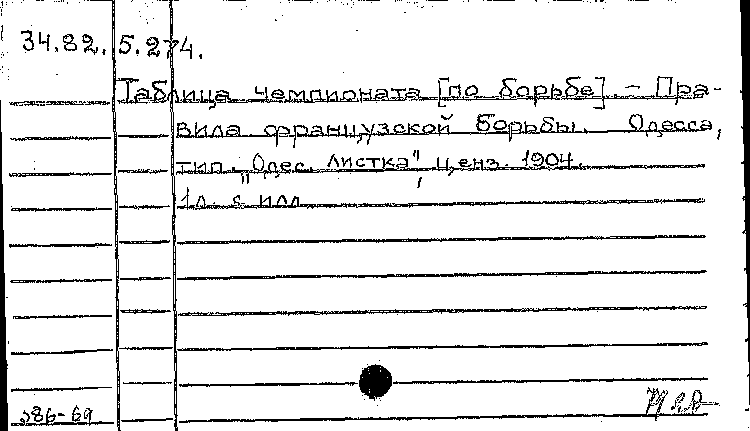 34.82.5.274.
Таблица чемпионата [по борьбе]. – Пра-
вила французской борьбы. Одесса,
тип. „Одес. листка", ценз. 1904.
1л. с илл.
586-69